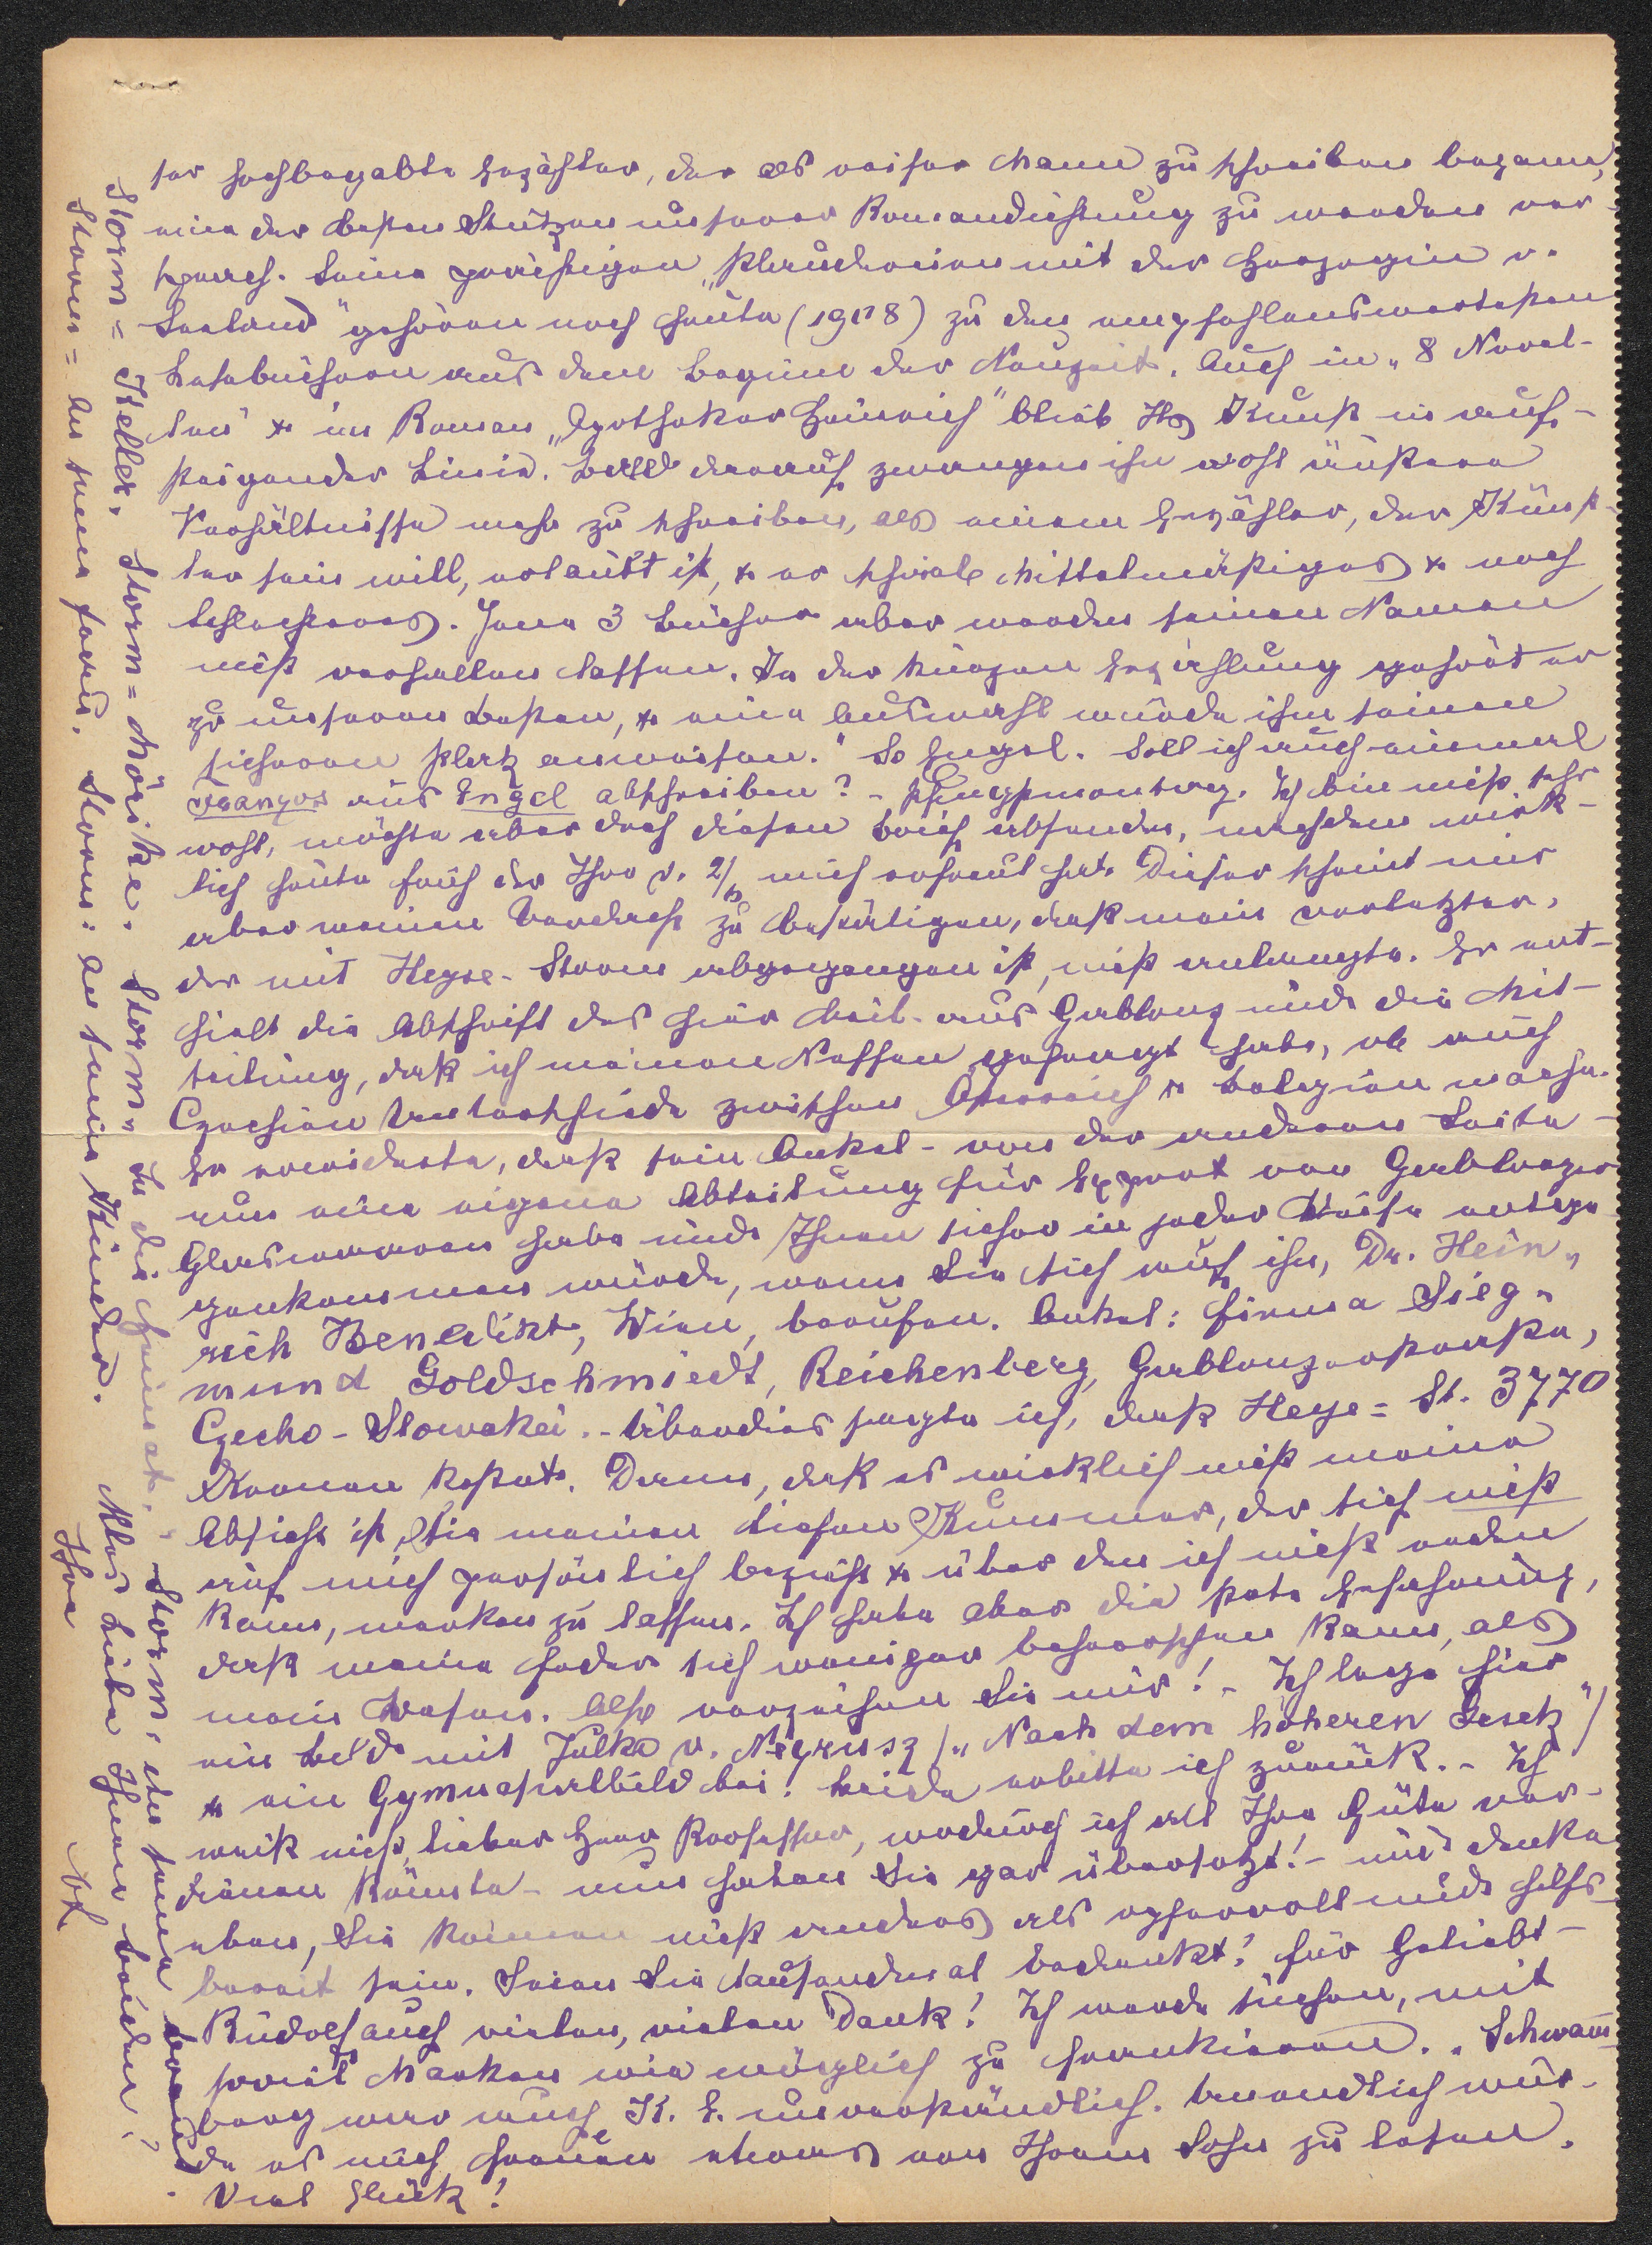 ser hochbegabte Erzähler, der als reifer Mann zu schreiben begann,
eine der besten Stützen unserer Romandichtung zu werden ver-
sprach. Seine prächtigen „Plaudereien mit der Herzogin v.
Seeland" gehören noch heute (1908) zu den empfehlenswertesten
Lesebüchern aus dem Beginne der Neuzeit. Auch in „8 Novel-
len" & im Roman „Apotheker Heinrich" blieb Hs Kunst in auf-
steigender Linie. Bald darauf zwangen ihn wohl äußere
Verhältnisse mehr zu schreiben, als einem Erzähler, der Künst-
ler sein will, erlaubt ist, & er schrieb Mittelmäßiges & noch
Schlechteres. Jene 3 Bücher aber werden seinen Namen
nicht verhallen lassen. In der kurzen Erzählung gehört er
zu unseren Besten, & eine Auswahl würde ihm seinen
sicheren Platz anweisen." So Engel. Soll ich auch einmal
Franzos aus Engel abschreiben? - Pfingstmontag. Ich bin nicht sehr
wohl, möchte aber doch diesen Brief absenden, nachdem wirk-
lich heute früh der Ihre v. 2/ mich erfreut hat. Dieser scheint mir
aber meinen Verdacht zu bestätigen, daß mein vorletzter,
der mit Heyse-Storm abgegangen ist, nicht anlangte. Er ent-
hielt die Abschrift des hier beil. aus Gablonz und die Mit-
teilung, daß ich meinen Neffen gefragt habe, ob auch
Czechien Unterschiede zwischen Österreich & Belgien mache.
Er erwiderte, daß sein Onkel - von der anderen Seite -
nun eine eigene Abteilung für Export von Gablonzer
Glaswaren habe und Ihnen sicher in jeder Weise entge-
genkommen würde, wenn Sie sich auf ihn, Dr. Hein-
rich Benedikt, Wien, beriefen. Onkel: Firma Sieg-
mund Goldschmiedt, Reichenberg, Gablonzerstraße,
Czecho-Slowakei. - Überdies sagte ich, daß Heyse=St. 3770
Kronen kostet. Dann, daß es wirklich nicht meine
Absicht ist, Sie meinen tiefen Kummer, der sich nicht
auf mich persönlich bezieht & über den ich nicht reden
kann, merken zu lassen. Ich habe aber die stete Erfahrung,
daß meine Feder sich weniger beherrschen kann, als
mein Wesen. Also verzeihen Sie mir! - Ich lege hier
ein Bild mit Julka v. Negrusz („Nach dem höheren Gesetz")
& ein Gymnasialbild bei. Beide erbitte ich zurück. - Ich
weiß nicht, lieber Herr Professor, wodurch ich all Ihre Güte ver-
dienen könnte - nun haben Sie gar übersetzt! - und denke
eben, Sie können nicht anders als opfervoll und hilfs-
bereit sein. Seien Sie tausendmal bedankt! Für Geliebt-
Rudolf auch vielen, vielen Dank! Ich werde suchen, mit
soviel Marken wie möglich zu frankieren. - Schwam-
berg war auch K. E. unverständlich. Unendlich wür-
de es mich freuen etwas von Ihrem Sohn zu lesen.
Viel Glück!
Storm = Keller, Storm = Mörike. Storm, In die Heimat. - Storm, An seine Braut.
Storm = An seine Frau. Storm: An seine Kinder.
Alles Liebe Ihnen beiden!
Ihre